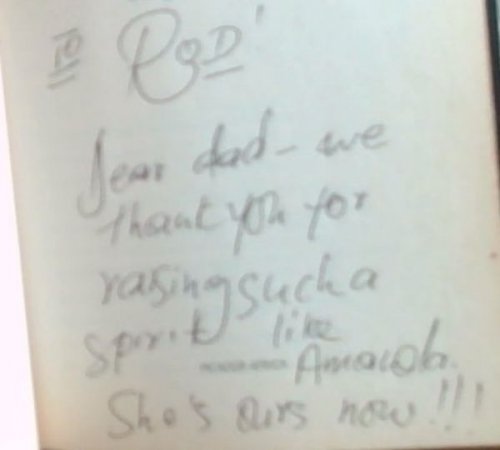 TO ROD!
Dear dad - we
thank you for
raising such a
spirit like
------ Amanda.
She's ours now!!!